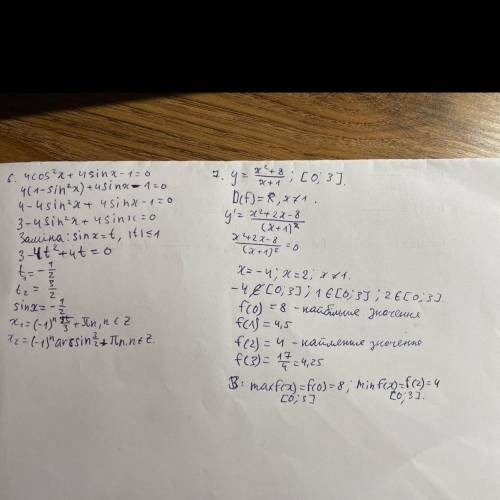 6. 4cos²x + 4sinx - 1 = 0
4(1 - sin²x) + 4sinx - 1 = 0
4 - 4sin²x + 4sinx - 1 = 0
3 - 4sin²x + 4sinx = 0
Заміна: sinx = t, |t| ≤ 1
3 - 4t² + 4t = 0
t₁ = -1/2
t₂ = 3/2
sinx = -1/2
x₁ = (-1)ⁿ + πn, n ∈ Z
x₂ = (-1)ⁿ arcsin 3/2 + πn, n ∈ Z.
7. y = (x² + 8)/(x + 1); [0; 3].
D(f) = R, x ≠ 1.
y' = (x² + 2x - 8)/(x + 1)²
(x² + 2x - 8)/(x + 1)² = 0
x = -4; x = 2; x ≠ 1.
-4 ∉ [0; 3]; 1 ∈ [0; 3]; 2 ∈ [0; 3].
f(0) = 8 - найбільше значення
f(1) = 4,5
f(2) = 4 - найменше значення
f(3) = 17/4 = 4,25
В: max f(x) = f(0) = 8; min f(x) = f(2) = 4
[0; 3] [0; 3].